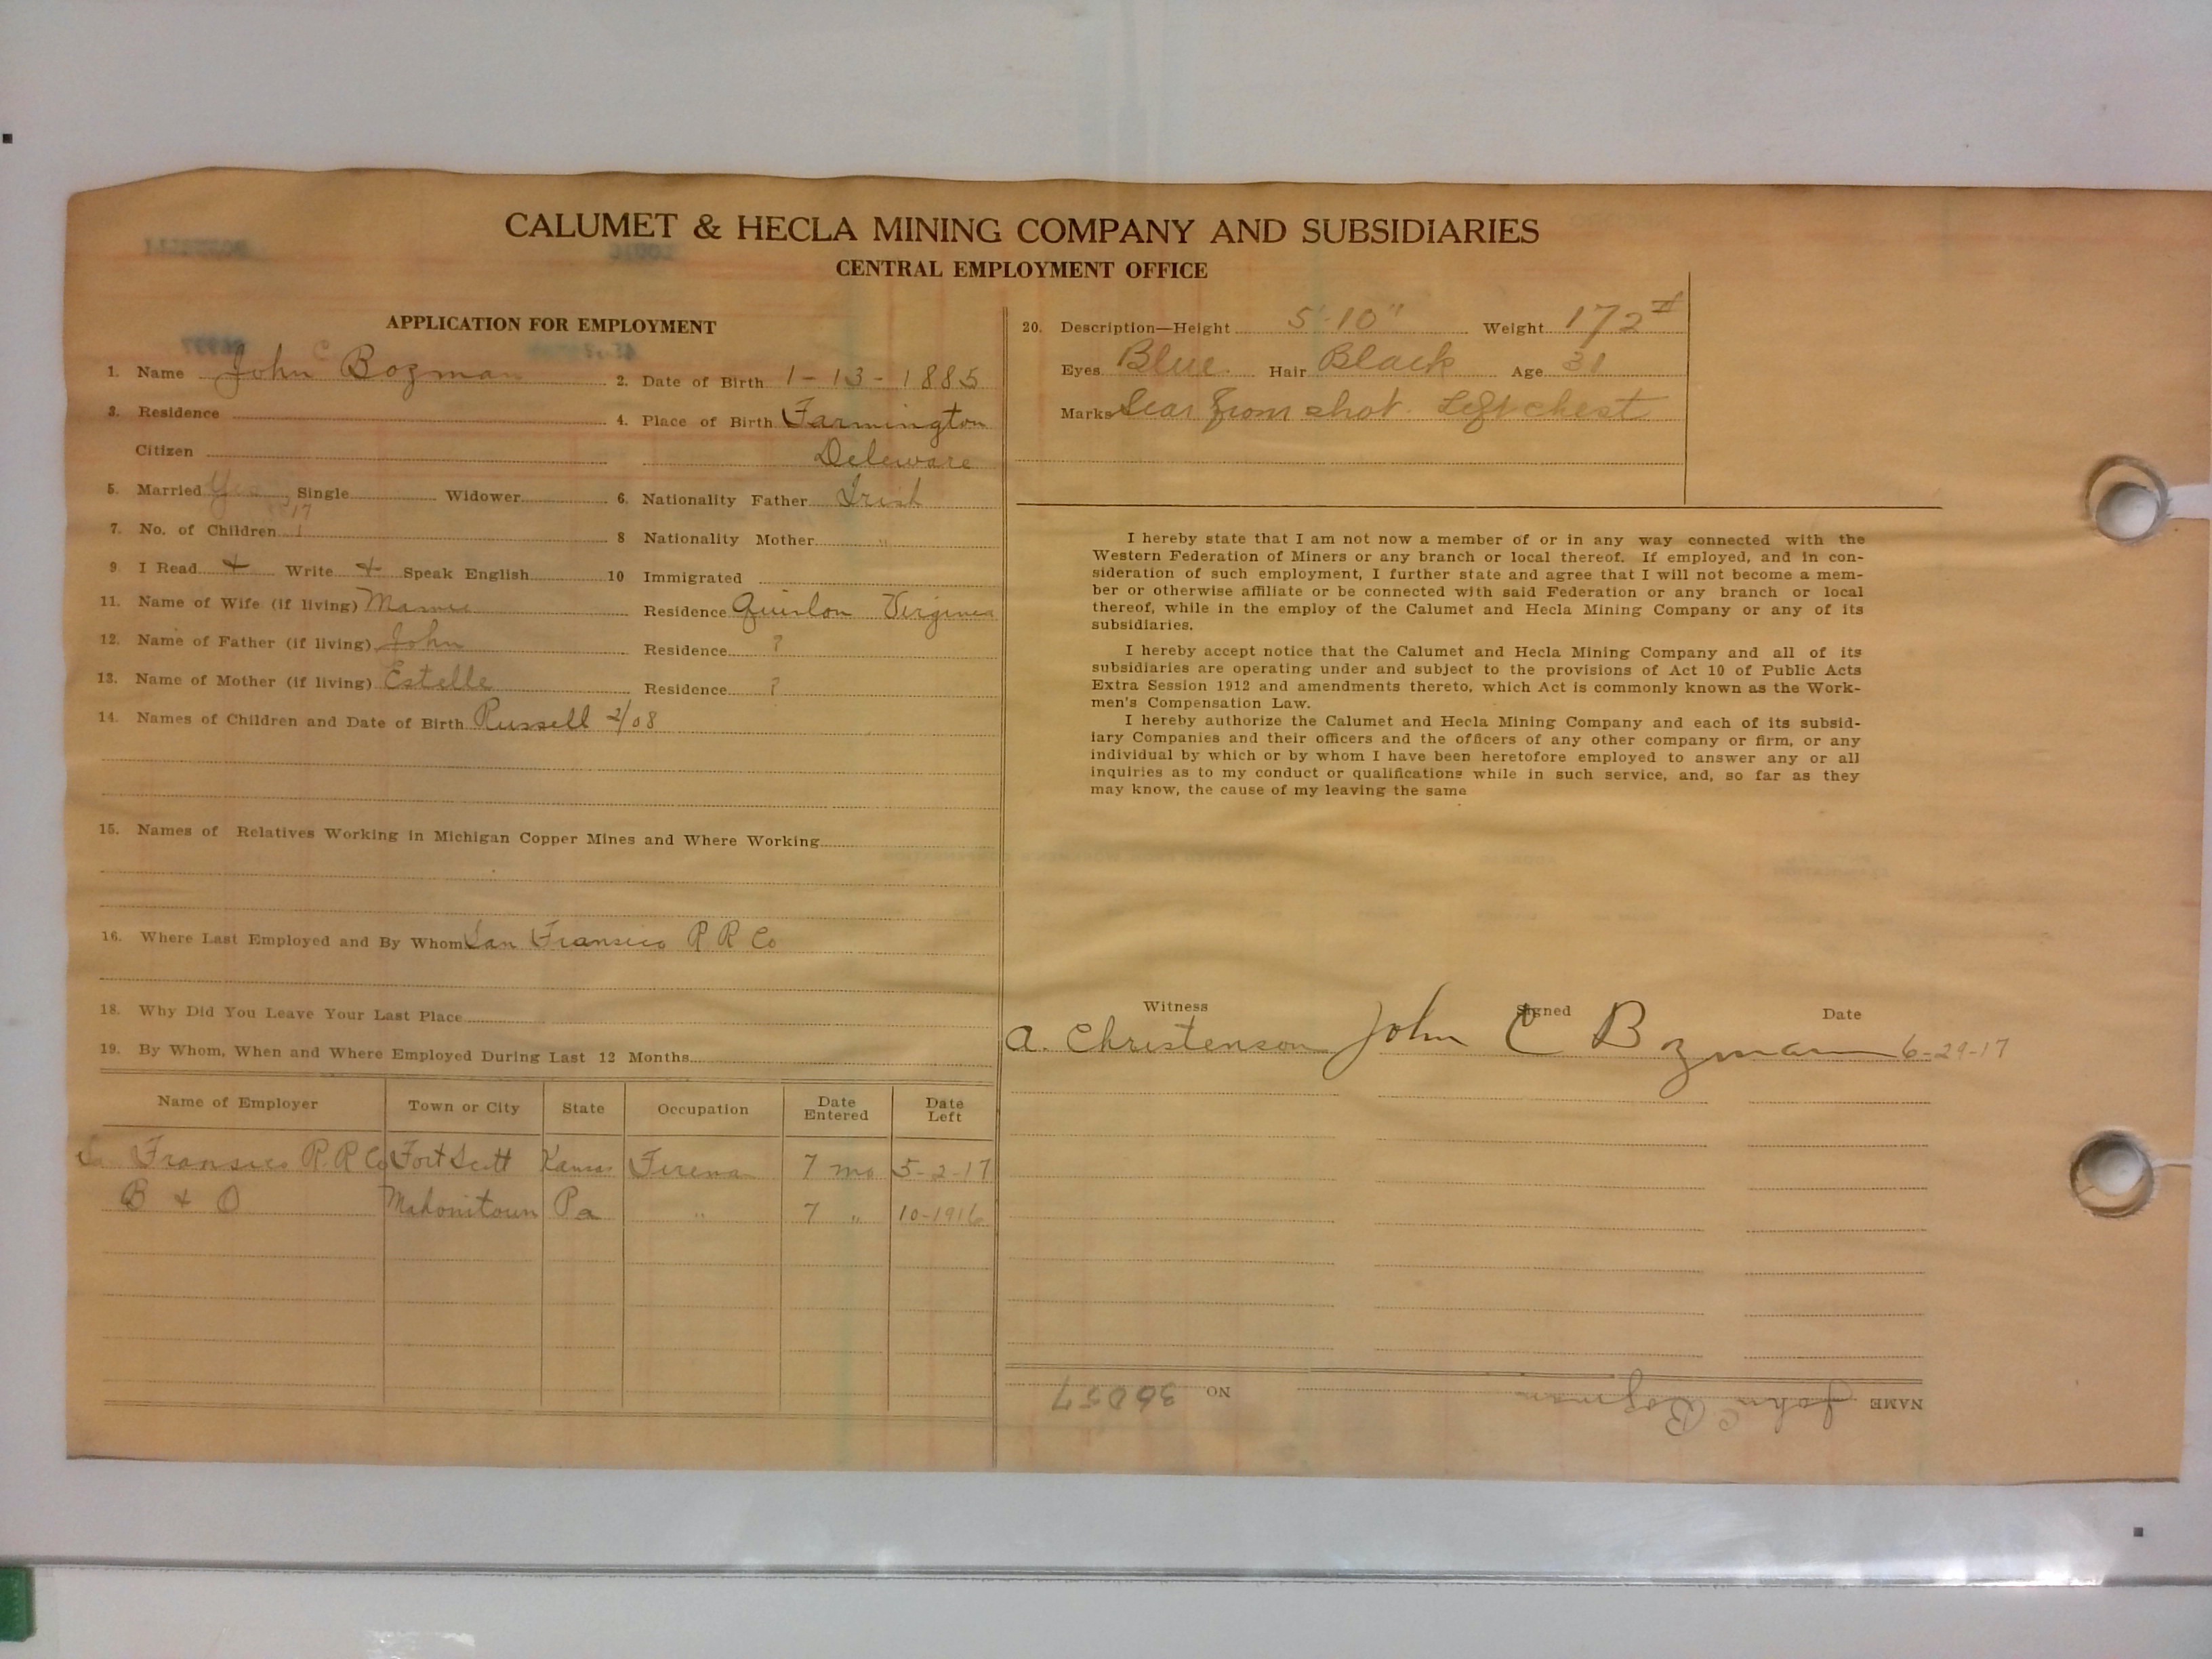 CALUMET & HECLA MINING COMPANY AND SUBSIDIARIES
CENTRAL EMPLOYMENT OFFICE
APPLICATION FOR EMPLOYMENT
1. Name John C Bozman 2. Date of Birth 1-13-1885
3. Residence 4. Place of Birth Farmington
Citizen Deleware
5. Married Yes Single Widower 6. Nationality Father Irish
7. No. of Children 1 8 Nationality Mother "
9. I Read + Write + Speak English 10 Immigrated
11. Name of Wife (if living) Mamie Residence Quinlon Virginia
12. Name of Father (if living) John Residence ?
13. Name of Mother (if living) Estelle Residence ?
14. Names of Children and Date of Birth Russell 2/08
15. Names of Relatives Working in Michigan Copper Mines and Where Working
16. Where Last Employed and By Whom San Fransico R R Co
18. Why Did You Leave Your Last Place
19. By Whom, When and Where Employed During Last 12 Months
Name of Employer Town or City State Occupation Date Entered Date Left
Fransico R.R Co Fort Scott Kansas Fireman 7 mo 5-2-17
B & O Mahonitown Pa " 7 " 10-1916
20. Description—Height 5'-10" Weight 172#
Eyes Blue. Hair Black Age 31
Marks Scar from shot. Left chest
I hereby state that I am not now a member of or in any way connected with the
Western Federation of Miners or any branch or local thereof. If employed, and in con-
sideration of such employment, I further state and agree that I will not become a mem-
ber or otherwise affiliate or be connected with said Federation or any branch or local
thereof, while in the employ of the Calumet and Hecla Mining Company or any of its
subsidiaries.
I hereby accept notice that the Calumet and Hecla Mining Company and all of its
subsidiaries are operating under and subject to the provisions of Act 10 of Public Acts
Extra Session 1912 and amendments thereto, which Act is commonly known as the Work-
men's Compensation Law.
I hereby authorize the Calumet and Hecla Mining Company and each of its subsid-
iary Companies and their officers and the officers of any other company or firm, or any
individual by which or by whom I have been heretofore employed to answer any or all
inquiries as to my conduct or qualifications while in such service, and, so far as they
may know, the cause of my leaving the same
Witness Signed Date
A. Christenson John C Bozman 6-29-17
NAME John C Bozman NO 36057